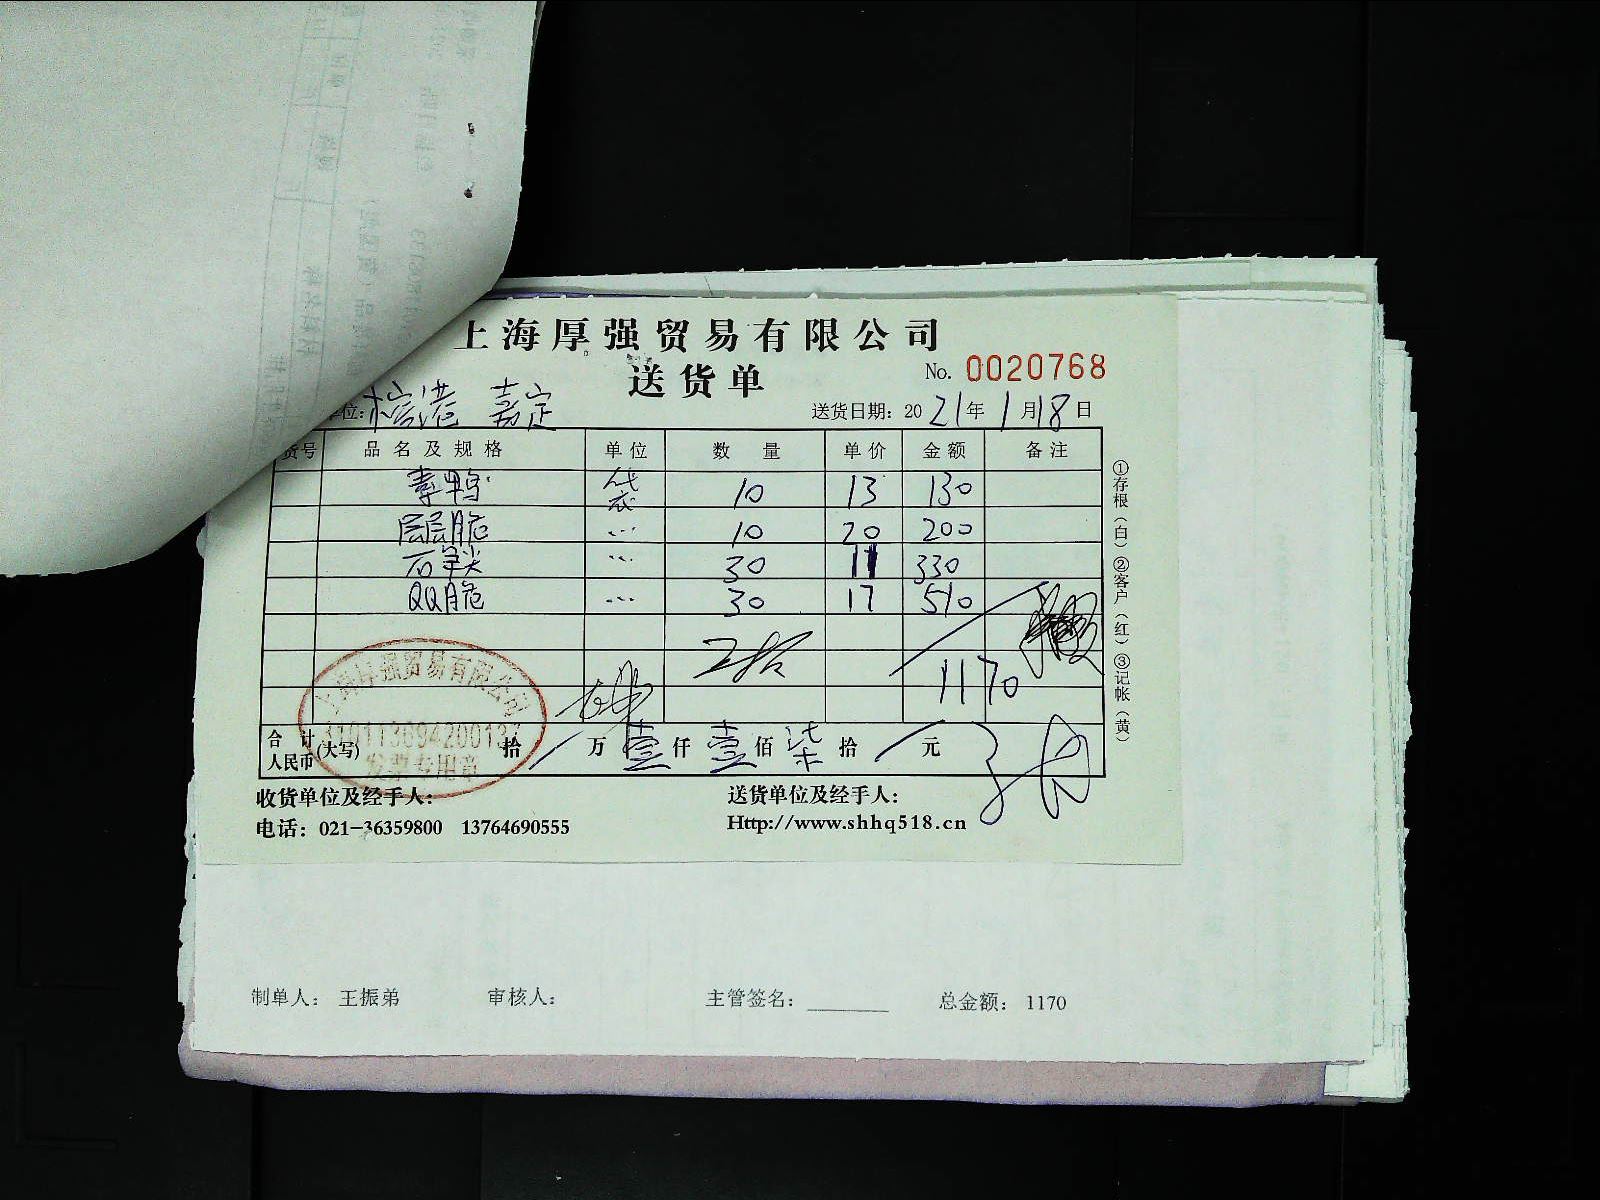 上海厚强贸易有限公司
送货单
No. 0020768
位: 嘉定 送货日期: 2021年1月18日
货号 品名及规格 单位 数量 单价 金额 备注
素鸭 袋 10 13 130
层层脆 〃 10 20 200
30 11 330
QQ脆 〃 30 17 510
1170
合计人民币(大写) 拾 / 万 壹 仟 壹 佰 柒 拾 / 元
收货单位及经手人: 送货单位及经手人:
电话: 021-36359800 13764690555 Http://www.shhq518.cn
①存根(白)②客户(红)③记帐(黄)
上海厚强贸易有限公司
发票专用章
制单人: 王振弟 审核人: 主管签名: 总金额: 1170